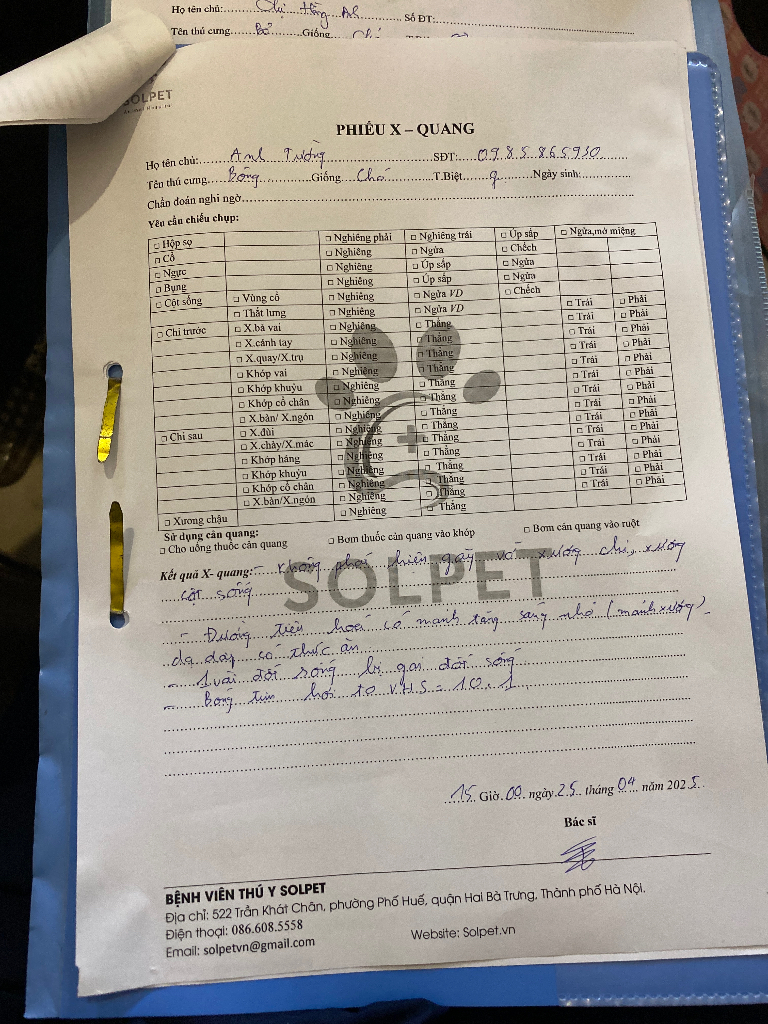 Họ tên chủ: Chị Hồng Số ĐT:
Tên thú cưng Bơ Giống Chó
SOLPET
PHIẾU X – QUANG
Họ tên chủ: Anh Tường SĐT: 0985865930
Tên thú cưng Bông Giống Chó T.Biệt ♀ Ngày sinh:
Chẩn đoán nghi ngờ
Yêu cầu chiếu chụp:
□ Hộp sọ □ Nghiêng phải □ Nghiêng trái □ Úp sấp □ Ngửa,mở miệng
□ Cổ □ Nghiêng □ Ngửa □ Chếch
□ Ngực □ Nghiêng □ Úp sấp □ Ngửa
□ Bụng □ Nghiêng □ Úp sấp □ Ngửa
□ Cột sống □ Vùng cổ □ Nghiêng □ Ngửa VD □ Chếch
□ Thắt lưng □ Nghiêng □ Ngửa VD □ Trái □ Phải
□ Chi trước □ X.bả vai □ Nghiêng □ Thẳng □ Trái □ Phải
□ X.cánh tay □ Nghiêng □ Thẳng □ Trái □ Phải
□ X.quay/X.trụ □ Nghiêng □ Thẳng □ Trái □ Phải
□ Khớp vai □ Nghiêng □ Thẳng □ Trái □ Phải
□ Khớp khuỷu □ Nghiêng □ Thẳng □ Trái □ Phải
□ Khớp cổ chân □ Nghiêng □ Thẳng □ Trái □ Phải
□ X.bàn/ X.ngón □ Nghiêng □ Thẳng □ Trái □ Phải
□ Chi sau □ X.đùi □ Nghiêng □ Thẳng □ Trái □ Phải
□ X.chày/X.mác □ Nghiêng □ Thẳng □ Trái □ Phải
□ Khớp háng □ Nghiêng □ Thẳng □ Trái □ Phải
□ Khớp khuỷu □ Nghiêng □ Thẳng □ Trái □ Phải
□ Khớp cổ chân □ Nghiêng □ Thẳng □ Trái □ Phải
□ X.bàn/X.ngón □ Nghiêng □ Thẳng
□ Xương chậu □ Nghiêng □ Thẳng
Sử dụng cản quang:
□ Cho uống thuốc cản quang □ Bơm thuốc cản quang vào khớp □ Bơm cản quang vào ruột
Kết quả X- quang: - Không phát hiện gãy vỡ xương chi, xương
cột sống
SOLPET
- Đường tiêu hoá có mảnh tăng sáng nhỏ (mảnh xương)
dạ dày có thức ăn
- 1 vài đốt sống bị gai đốt sống
- Bóng tim hơi to VHS = 10.1
15 Giờ 00 ngày 25 tháng 04 năm 2025
Bác sĩ
BỆNH VIÊN THÚ Y SOLPET
Địa chỉ: 522 Trần Khát Chân, phường Phố Huế, quận Hai Bà Trưng, Thành phố Hà Nội.
Điện thoại: 086.608.5558
Email: solpetvn@gmail.com Website: Solpet.vn